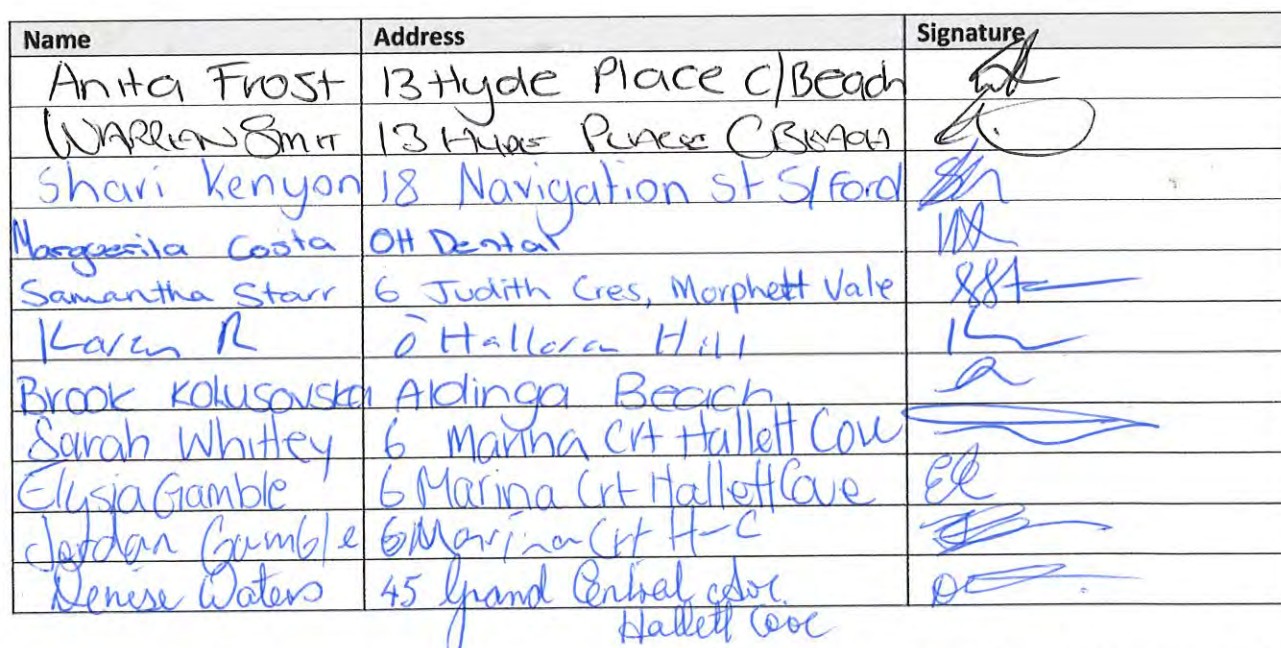 Name Address Signature
Anita Frost 13 Hyde Place C/Beach
WARREN SMIT 13 HYDE PLACE C BEACH
Shari Kenyon 18 Navigation St S/Ford
Marguerita Costa OH Dental
Samantha Starr 6 Judith Cres, Morphett Vale
Karen R O Halloran Hill
Brook Aldinga Beach
Sarah Whitley 6 Marina Crt Hallett Cove
Elysia Gamble 6 Marina Crt Hallett Cove
Jordan Gamble 6 Marina Crt H-C
Denise Waters 45 Grand Central Ave.
Hallett Cove